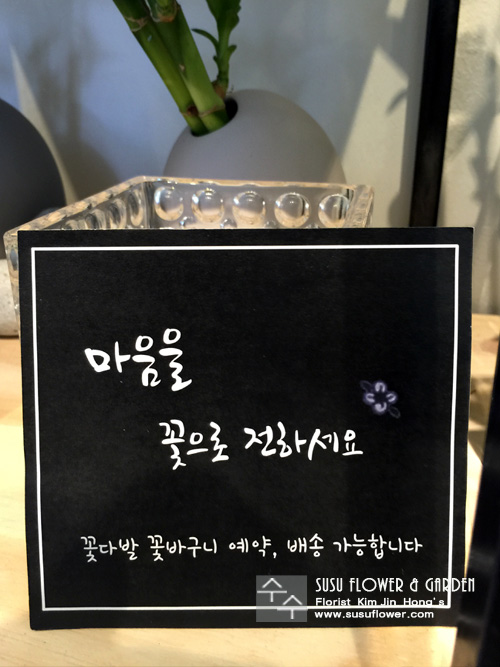 마음을
꽃으로 전하세요
꽃다발 꽃바구니 예약, 배송 가능합니다
수수
SUSU FLOWER & GARDEN
Florist Kim Jin Hong's
www.susuflower.com